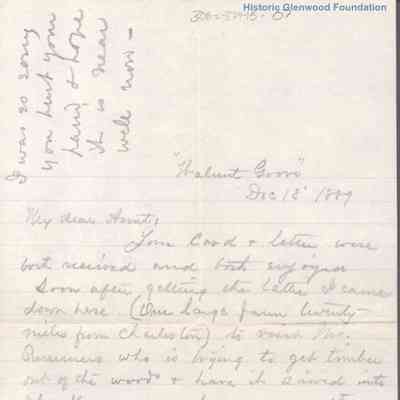 Historic Glenwood Foundation
I was so sorry
you hurt your
hand & hope
it is near
well now -
"Walnut Grove"
Dec 18' 1889
My dear Aunt,
Your Card & letter were
both received and both enjoyed
Soon after getting the letter I came
down here (Our large farm twenty
miles from Charleston) to assist Mr.
who is trying to get timber
out of the woods & have it sawed into